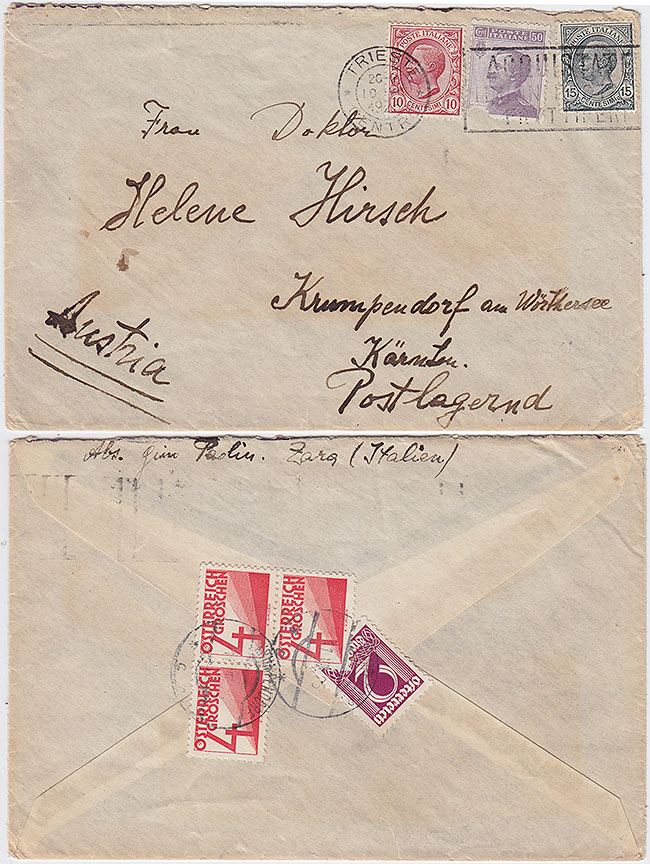 TRIESTE
CENTRO
POSTE ITALIANE
10 CENTESIMI 10
POSTE ITALIANE
50
POSTE ITALIANE
15 CENTESIMI 15
Frau Doktor
Helene Hirsch
Krumpendorf am Wörthersee
Kärnten.
Austria
Postlagernd
Abs. Paolin. Zara (Italien)
ÖSTERREICH
GROSCHEN
4
ÖSTERREICH
GROSCHEN
4
ÖSTERREICH
GROSCHEN
4
6
Österreich